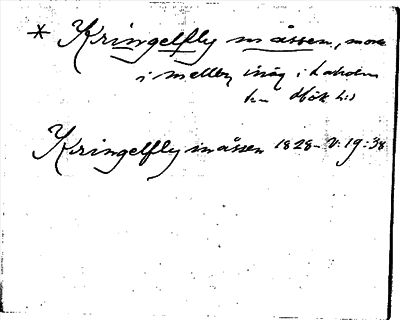 * Kringelfly måssen, mosse
i mellby inäg i Laholm
Kringelfly måssen 1828- V. 19:38